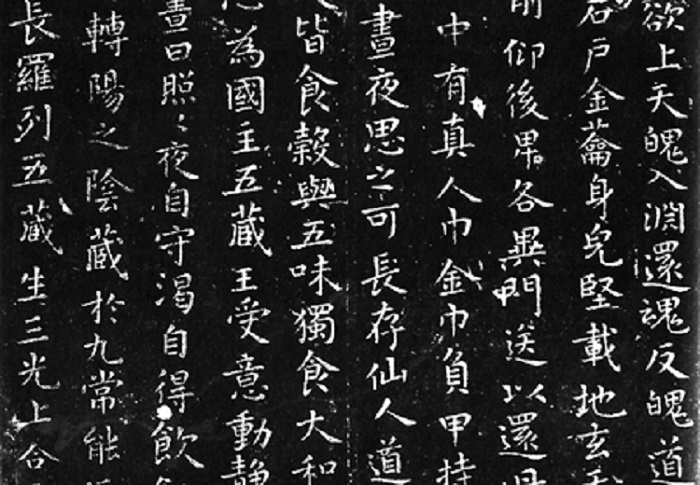 欲上天魄入淵還魂反魄道
石戶金籥身皃堅載地玄
前仰後卑各異門送以還丹
中有真人巾金巾負甲持
晝夜思之可長存仙人道
皆食穀與五味獨食大和
為國主五藏王受意動靜
晝日照〻夜自守渴自得飲
轉陽之陰藏於九常能
長羅列五藏生三光上合